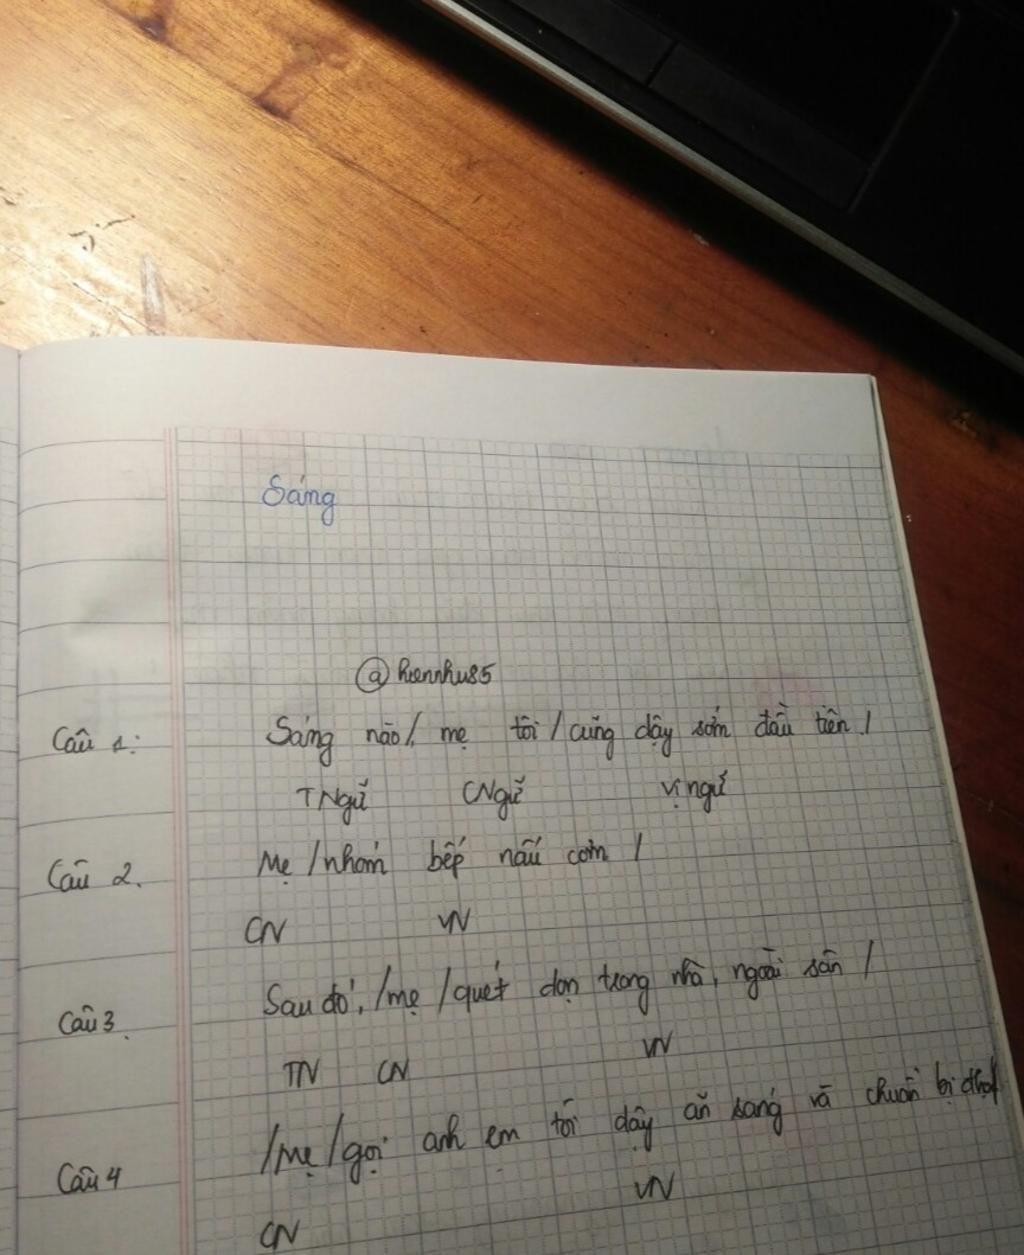 Sáng
@hiennhu85
Câu 1: Sáng nào/, mẹ tôi / cũng dậy sớm đầu tiên. /
TNgữ CNgữ vị ngữ
Câu 2. Mẹ / nhóm bếp nấu cơm /
CN VN
Câu 3. Sau đó, /mẹ /quét dọn trong nhà, ngoài sân /
TN CN VN
Câu 4 /Mẹ /gọi anh em tôi dậy ăn sáng và chuẩn bị
CN VN